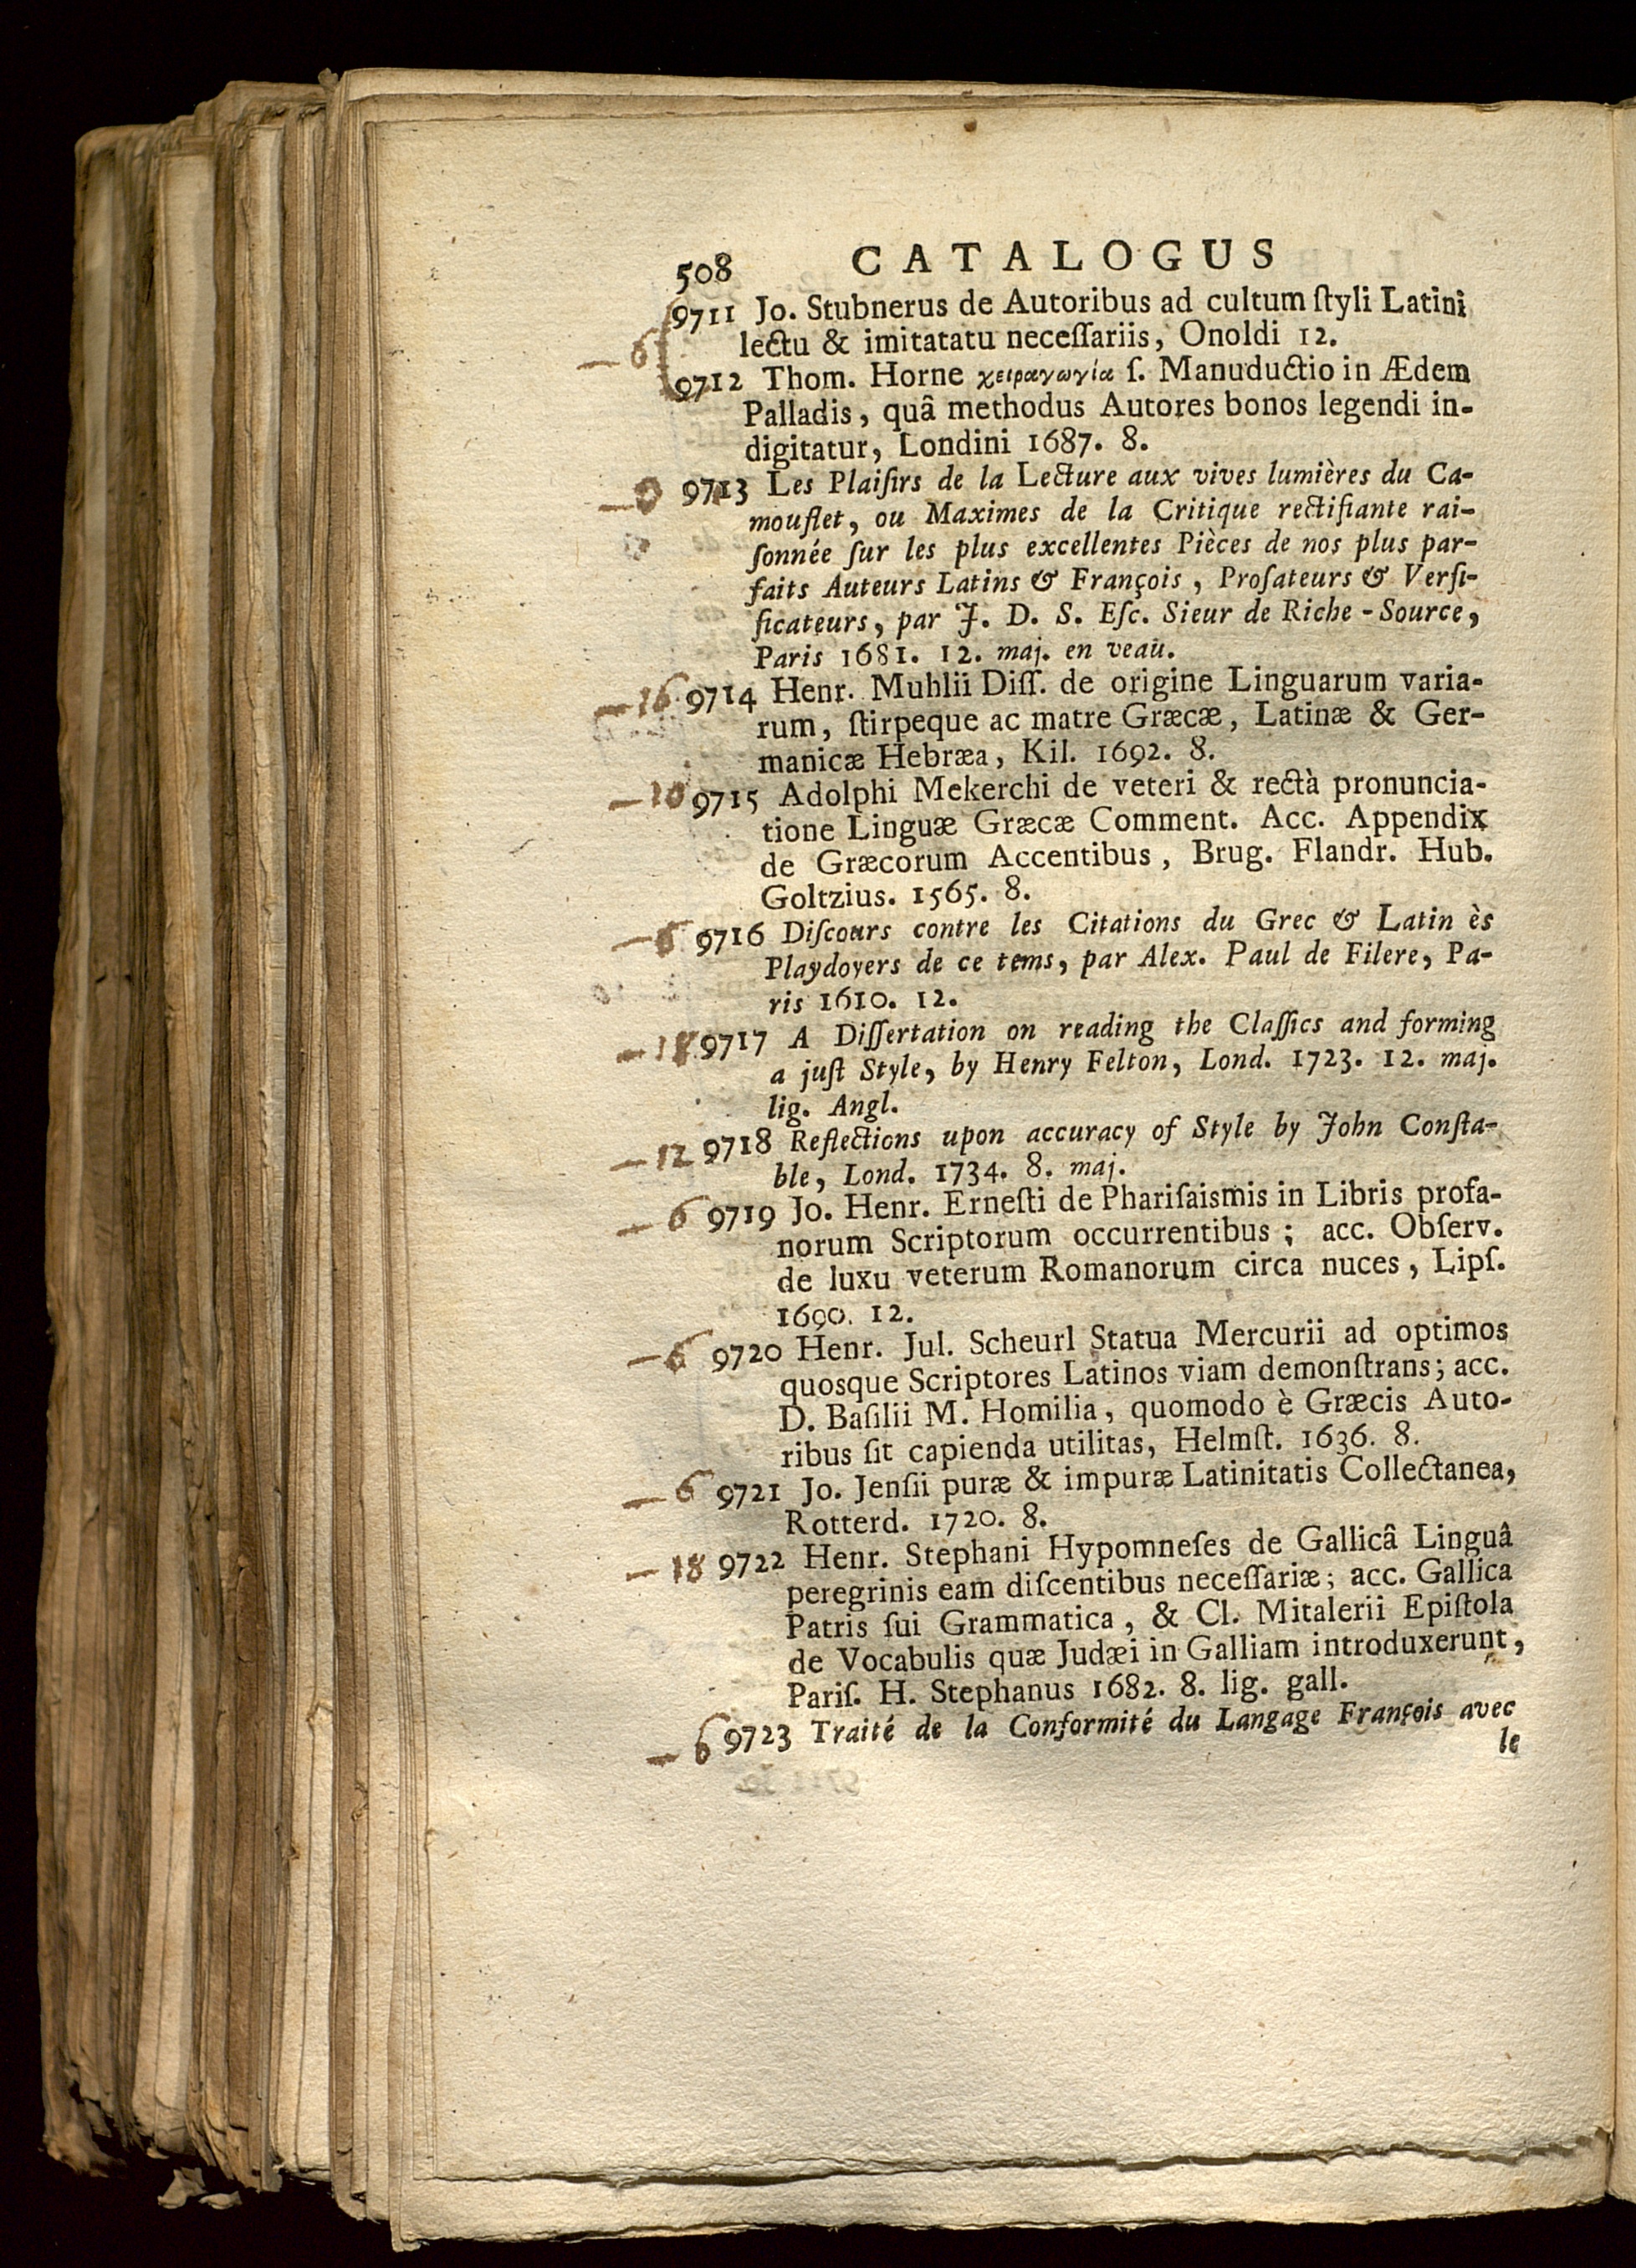 508 CATALOGUS
9711 Jo. Stubnerus de Autoribus ad cultum ſtyli Latini
— 6
lectu & imitatatu neceſſariis, Onoldi 12.
9712 Thom. Horne χειραγωγία ſ. Manuductio in Ædem
Palladis, quâ methodus Autores bonos legendi in-
digitatur, Londini 1687. 8.
9713 Les Plaiſirs de la Lecture aux vives lumières du Ca-
mouflet, ou Maximes de la Critique rectifiante rai-
ſonnée ſur les plus excellentes Pièces de nos plus par-
faits Auteurs Latins & François, Proſateurs & Verſi-
ficateurs, par J. D. S. Eſc. Sieur de Riche-Source,
Paris 1681. 12. maj. en veau.
— 16 9714 Henr. Muhlii Diſſ. de origine Linguarum varia-
rum, ſtirpeque ac matre Græcæ, Latinæ & Ger-
manicæ Hebræa, Kil. 1692. 8.
— 10 9715 Adolphi Mekerchi de veteri & rectà pronuncia-
tione Linguæ Græcæ Comment. Acc. Appendix
de Græcorum Accentibus, Brug. Flandr. Hub.
Goltzius. 1565. 8.
9716 Diſcours contre les Citations du Grec & Latin ès
Playdoyers de ce tems, par Alex. Paul de Filere, Pa-
ris 1610. 12.
— 18 9717 A Diſſertation on reading the Claſſics and forming
a juſt Style, by Henry Felton, Lond. 1723. 12. maj.
lig. Angl.
— 12 9718 Reflections upon accuracy of Style by John Conſta-
ble, Lond. 1734. 8. maj.
— 6 9719 Jo. Henr. Erneſti de Phariſaismis in Libris profa-
norum Scriptorum occurrentibus; acc. Obſerv.
de luxu veterum Romanorum circa nuces, Lipſ.
1690. 12.
— 6 9720 Henr. Jul. Scheurl Statua Mercurii ad optimos
quosque Scriptores Latinos viam demonſtrans; acc.
D. Baſilii M. Homilia, quomodo è Græcis Auto-
ribus ſit capienda utilitas, Helmſt. 1636. 8.
— 6 9721 Jo. Jenſii puræ & impuræ Latinitatis Collectanea,
Rotterd. 1720. 8.
— 18 9722 Henr. Stephani Hypomneſes de Gallicâ Linguâ
peregrinis eam diſcentibus neceſſariæ; acc. Gallica
Patris ſui Grammatica, & Cl. Mitalerii Epiſtola
de Vocabulis quæ Judæi in Galliam introduxerunt,
Pariſ. H. Stephanus 1682. 8. lig. gall.
— 6 9723 Traité de la Conformité du Langage François avec
le